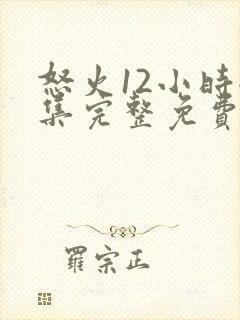 怒火12小時
集完整免費
羅宗正